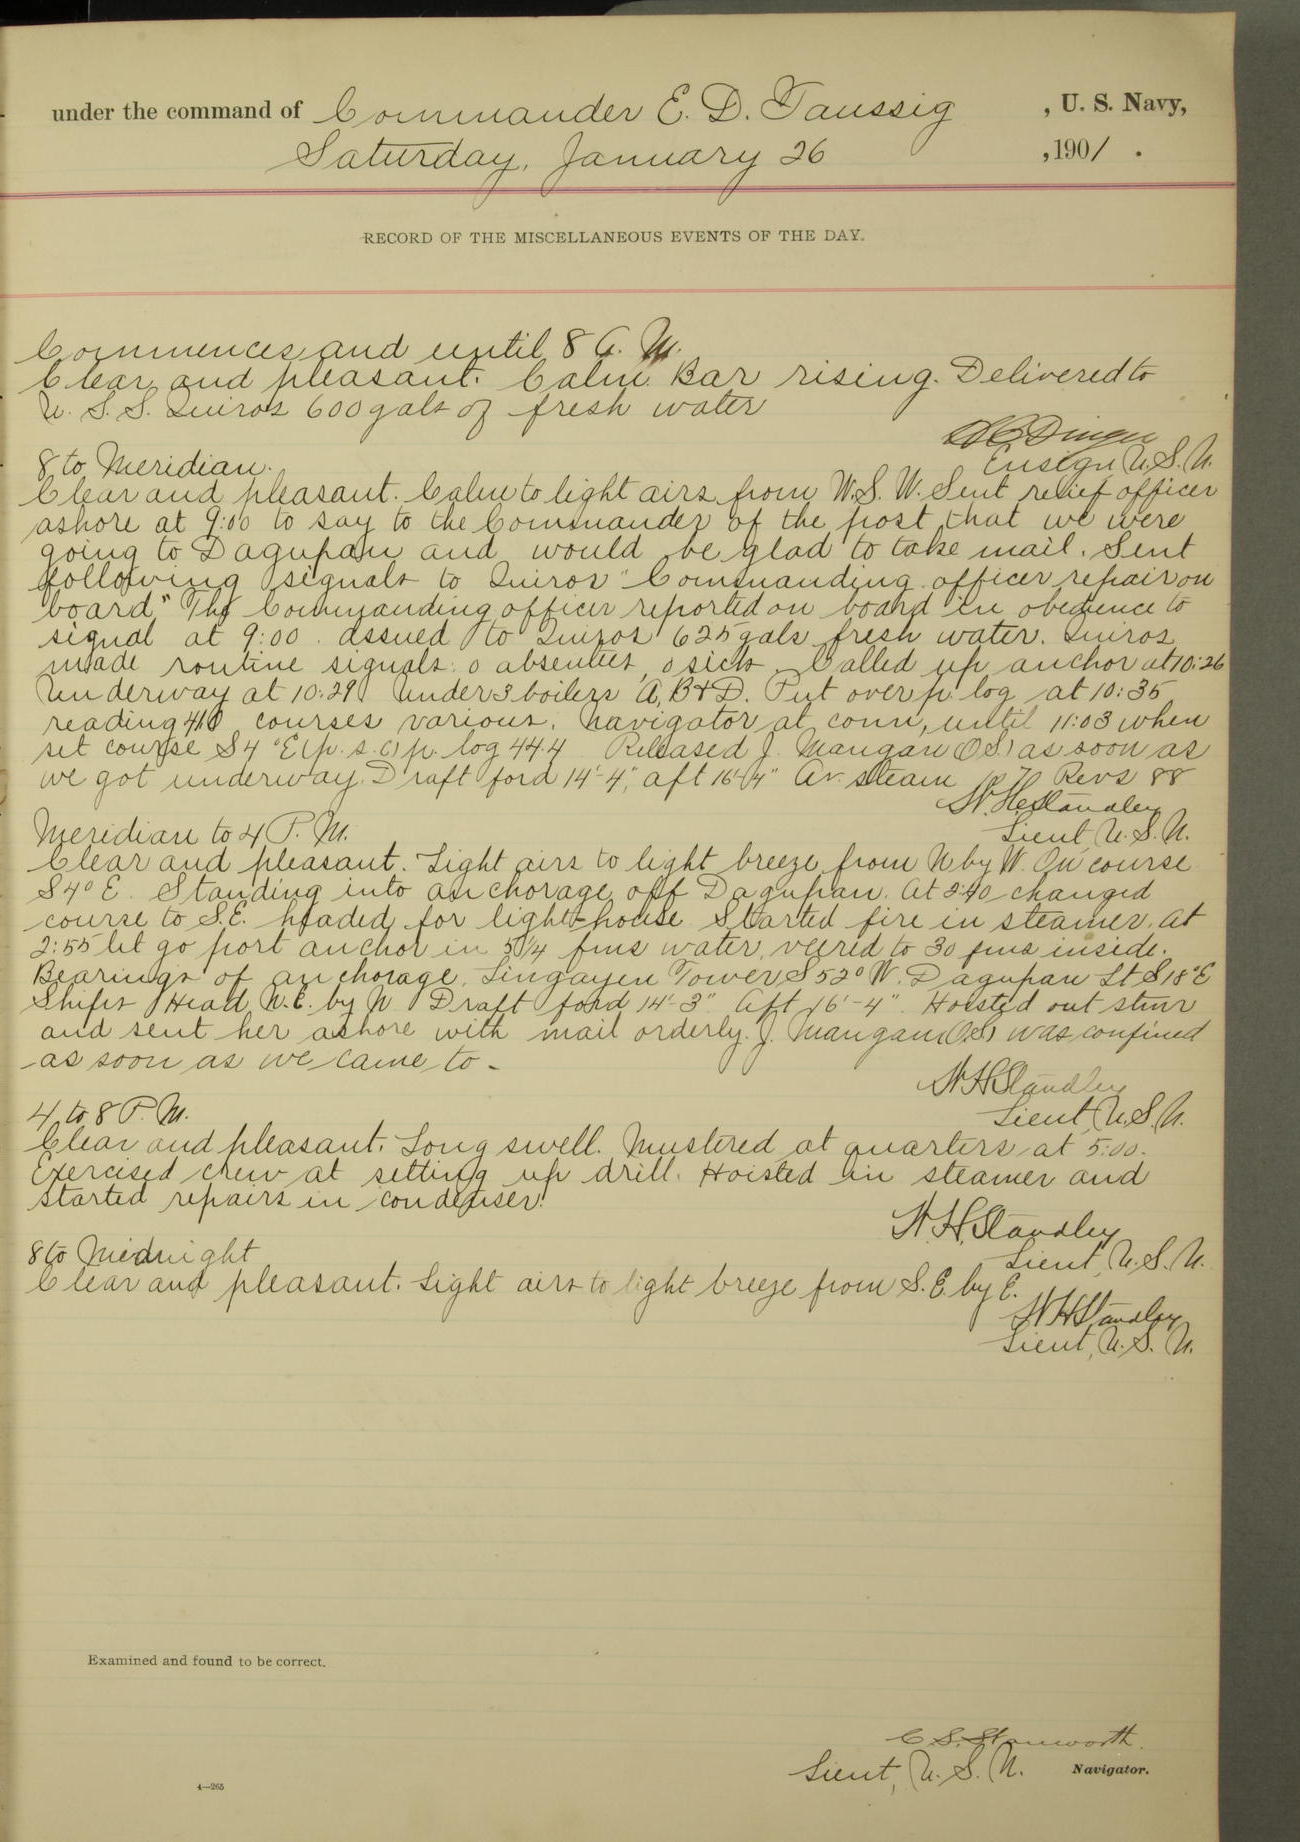 under the command of Commander E. D. Taussig , U. S. Navy,
Saturday, January 26 , 1901 .
RECORD OF THE MISCELLANEOUS EVENTS OF THE DAY.
Commences and until 8 A. M.
Clear and pleasant. Calm. Bar rising. Delivered to
U. S. S. Quiros 600 gals of fresh water
Ensign U. S. N.
8 to Meridian.
Clear and pleasant. Calm to light airs from W. S. W. Sent relief officer
ashore at 9:00 to say to the Commander of the post that we were
going to Dagupan and would be glad to take mail. Sent
following signals to Quiros "Commanding officer repair on
board" The Commanding officer reported on board in obedience to
signal at 9:00. Issued to Quiros 625 gals fresh water. Quiros
made routine signals: 0 absentees, 0 sick. Called up anchor at 10:26
Underway at 10:29 under 3 boilers A, B & D. Put over p. log at 10:35
reading 41.0 courses various. Navigator at conn, until 11:03 when
set course S 4° E (p. s. c) p. log 44.4 Released J. Mangan (O.S.) as soon as
we got underway. Draft ford 14'-4", aft 16'-4" Av. steam Revs 88
W. H. Standley
Lieut, U. S. N.
Meridian to 4 P. M.
Clear and pleasant. Light airs to light breeze from N by W. On course
S 4° E. Standing into anchorage off Dagupan. At 2:40 changed
course to S. E. headed for light-house Started fire in steamer. At
2:55 let go port anchor in 5 1/4 fms water, veered to 30 fms inside.
Bearings of anchorage, Lingayen Tower S 52° W. Dagupan Lt S 18° E
Ships Head N. E. by N Draft ford 14'-3" Aft 16'-4". Hoisted out stmr
and sent her ashore with mail orderly. J. Mangan (O.S.) was confined
as soon as we came to -
W H Standley
Lieut, U. S. N.
4 to 8 P. M.
Clear and pleasant. Long swell. Mustered at quarters at 5:00.
Exercised crew at setting up drill. Hoisted in steamer and
started repairs in condenser.
W. H. Standley
Lieut, U. S. N.
8 to Midnight
Clear and pleasant. Light airs to light breeze from S. E. by E.
W H Standley
Lieut, U. S. N.
Examined and found to be correct.
C. S. Stanworth.
Lieut, U. S. N. Navigator.
4—265